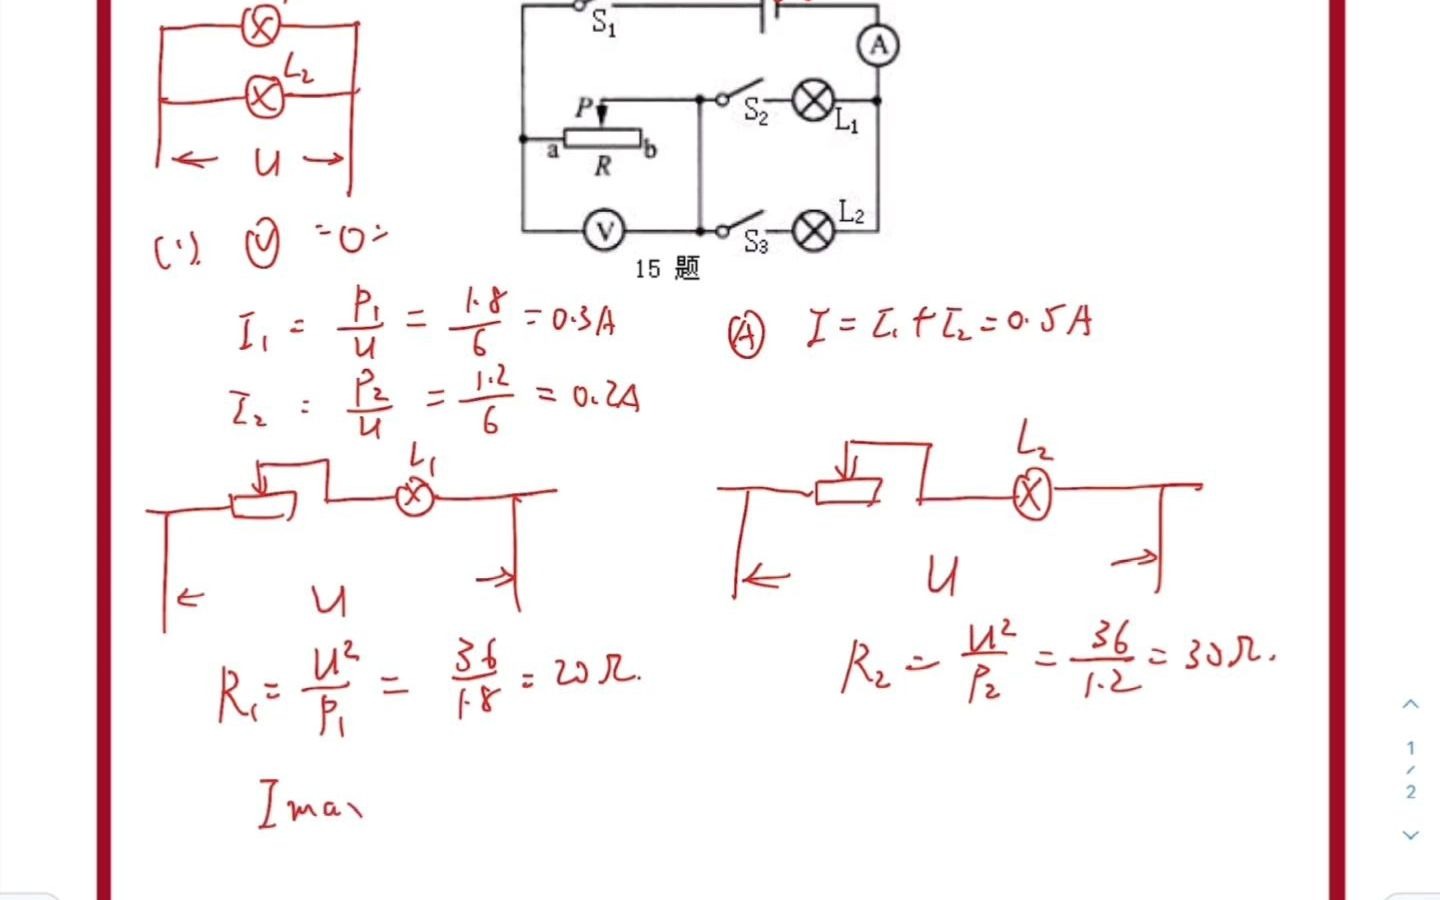 L₂
U
S₁
A
P
a
b
R
S₂
L₁
V
S₃
L₂
15 题
(1). Ⓥ =0:
I₁ = P₁/U = 1.8/6 = 0.3A
Ⓐ I = I₁ + I₂ = 0.5A
I₂ = P₂/U = 1.2/6 = 0.2A
L₁
L₂
U
U
R₁ = U²/P₁ = 36/1.8 = 20Ω.
R₂ = U²/P₂ = 36/1.2 = 30Ω.
1
/
2